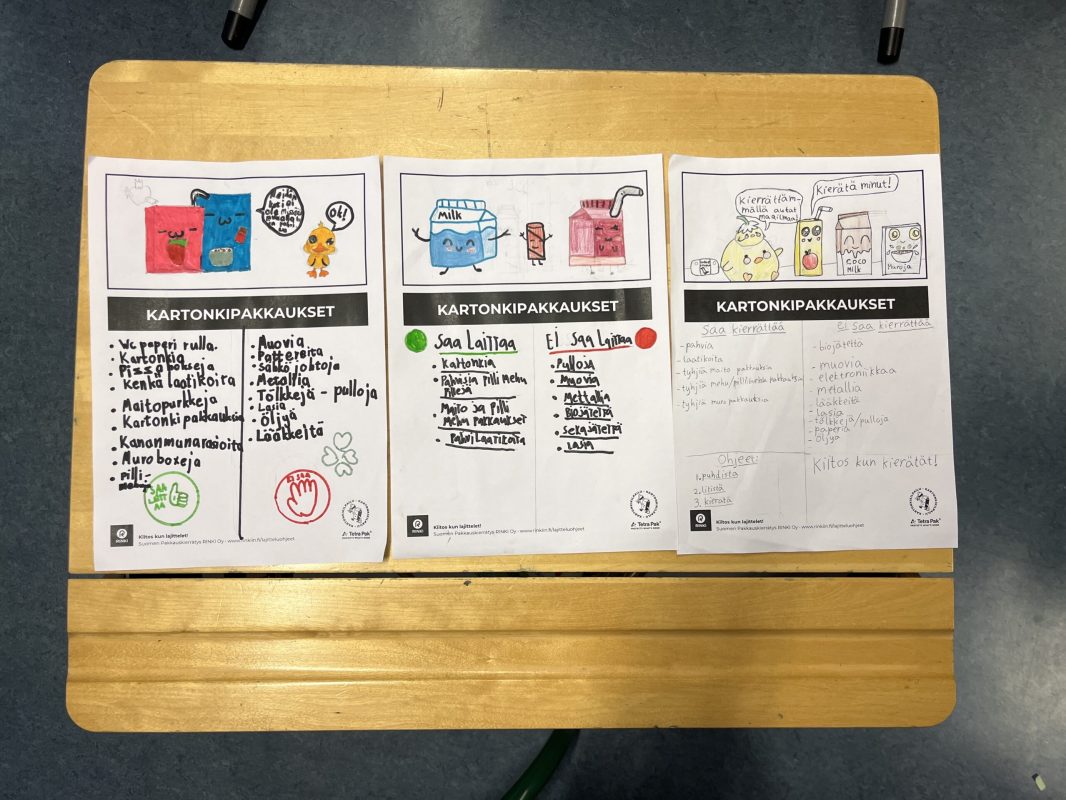 ok!
KARTONKIPAKKAUKSET
• Wc paperi rulla.
• Kartonkia
• Pizza bokseja
• Kenkä laatikoita
• Maitopurkkeja
• Kartonki pakkauksia
• Kananmunarasioita
• Muro boxeja
• Pilli-
SAA LAITTAA
• Muovia
• Pattereita
• Sähkö johtoja
• Metallia
• Tölkkejä - pulloja
• Lasia
• öljyä
• Lääkkeitä
EI SAA
RINKI
Kiitos kun lajittelet!
Suomen Pakkauskierrätys RINKI Oy - www.rinkiin.fi/lajitteluohjeet
Tetra Pak
MILK
KARTONKIPAKKAUKSET
Saa Laittaa
• Kartonkia
• Pahvisia Pilli Mehu
Pillejä
• Maito Ja Pilli
Mehu Pakkaukset
• PahviLaatikoita
EI Saa Laittaa
• Pulloja
• Muovia
• Mettallia
• Biojätettä
• Sekajätettä
• Lasia
RINKI
Kiitos kun lajittelet!
Suomen Pakkauskierrätys RINKI Oy - www.rinkiin.fi/lajitteluohjeet
Tetra Pak
Kierrättäm-
mällä autat
maailmaa!
Kierrätä minut!
COCO
MILK
Muroja
KARTONKIPAKKAUKSET
Saa kierrättää
- pahvia
- laatikoita
- tyhjiä maito pakkauksia
- tyhjiä mehu/pillimehu pakkauksia
- tyhjiä muro pakkauksia
Ei saa kierrättää
- biojätettä
- muovia
- elektroniikkaa
- metallia
- lääkkeitä
- lasia
- tölkkejä/pulloja
- paperia
- öljyä
Ohjeet:
1. puhdista
2. litistä
3. kierrätä
Kiitos kun kierätät!
RINKI
Kiitos kun lajittelet!
Suomen Pakkauskierrätys RINKI Oy - www.rinkiin.fi/lajitteluohjeet
Tetra Pak